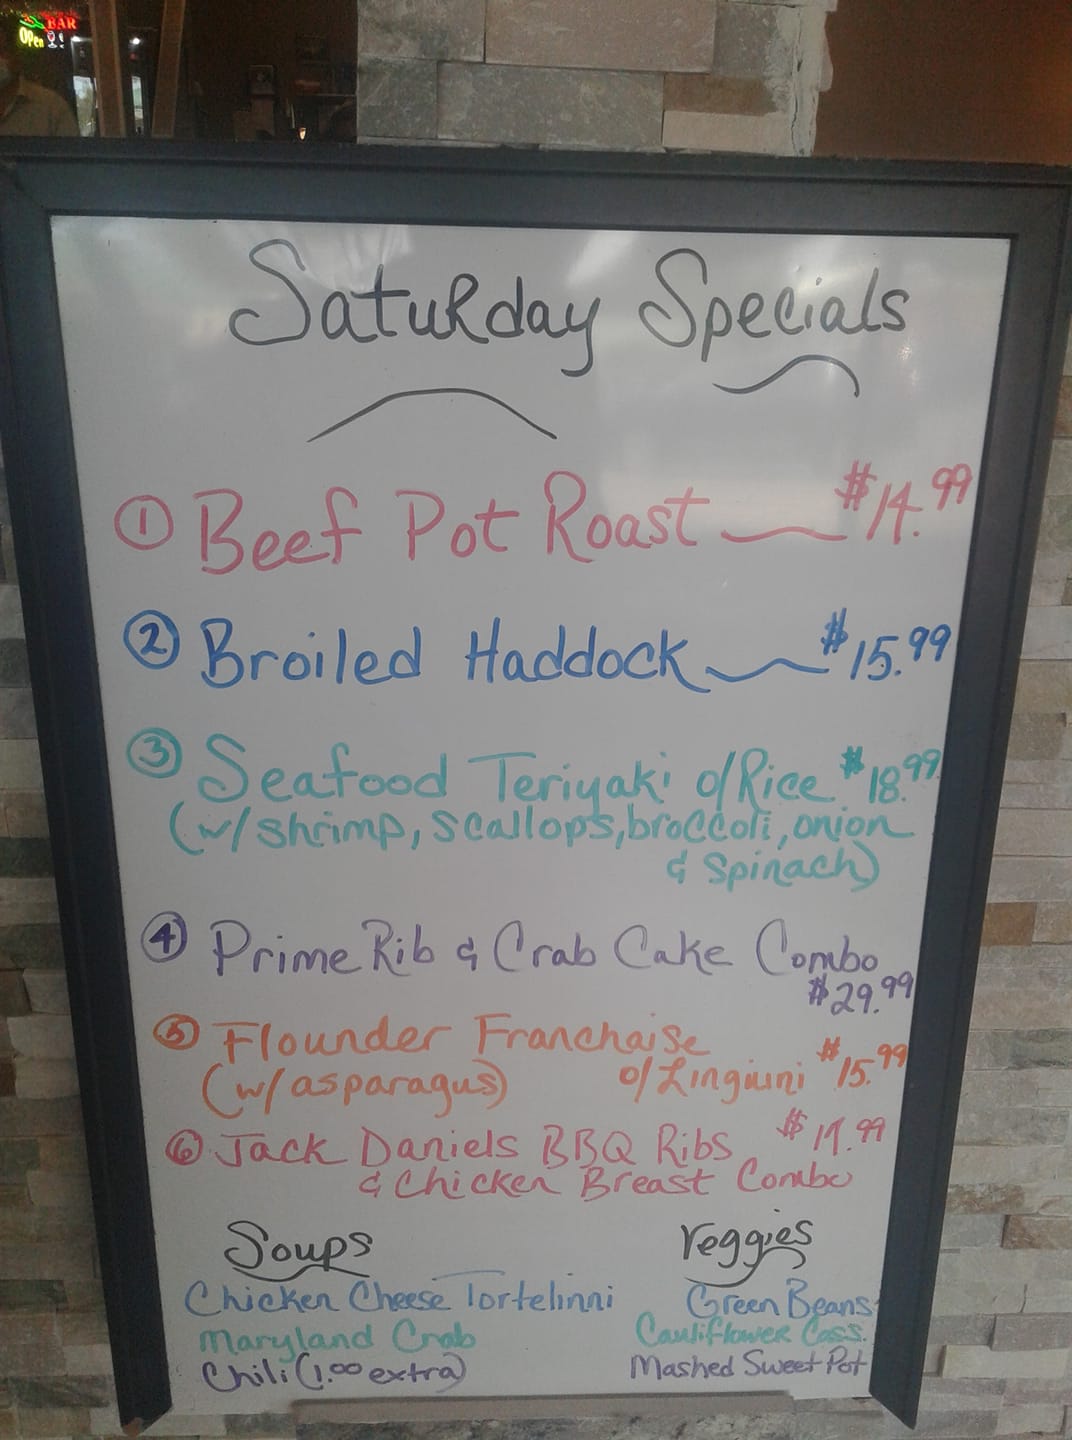 BAR
Open
Saturday Specials
① Beef Pot Roast $14.99
② Broiled Haddock $15.99
③ Seafood Teriyaki o/Rice $18.99
(w/shrimp, scallops, broccoli, onion
& spinach)
④ Prime Rib & Crab Cake Combo
$29.99
⑤ Flounder Franchaise
(w/asparagus) o/Linguini $15.99
⑥ Jack Daniels BBQ Ribs $19.99
& Chicken Breast Combo
Soups Veggies
Chicken Cheese Tortelinni Green Beans
Maryland Crab Cauliflower Cass.
Chili (1.00 extra) Mashed Sweet Pot